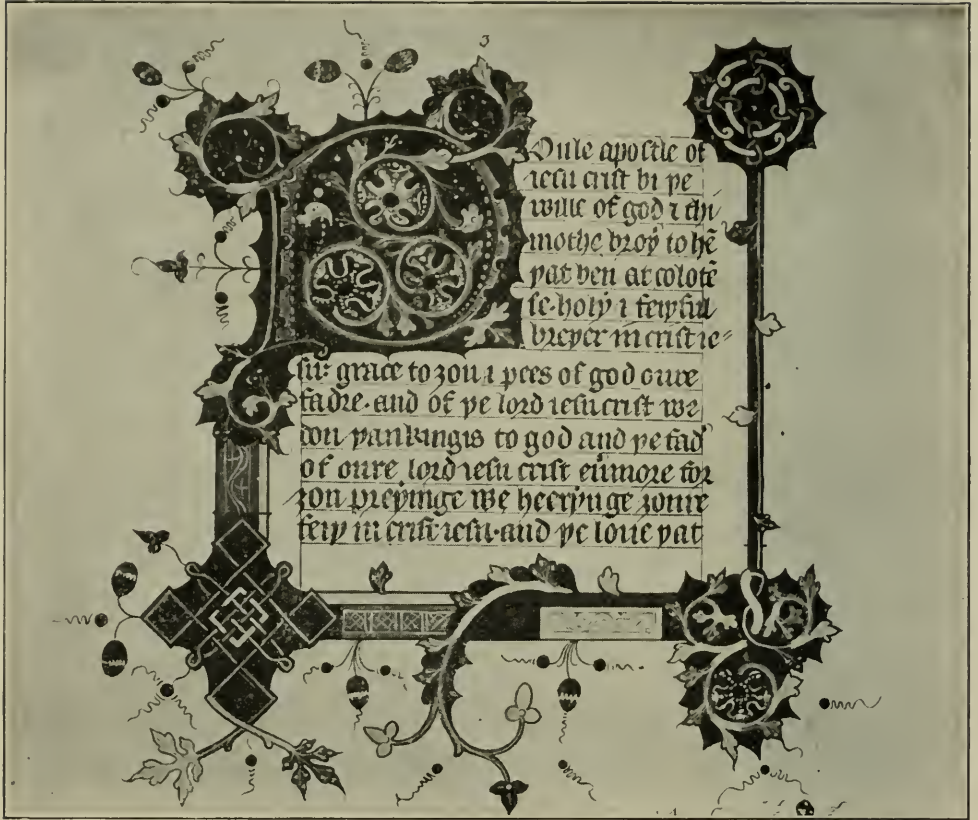 Poule apostle of
iesu crist bi þe
wille of god ⁊ thi
mothe broþ̉ to hē
þat ben at colocē
se· holy ⁊ feiþful
breþer in crist ie⸗
su: grace to ȝou ⁊ pees of god oure
fadre· and of þe lord iesu crist we
don þankingis to god and þe fad̉
of oure lord iesu crist eủmore for
ȝou preyinge we heerynge ȝoure
feiþ in crist iesu· and þe loue þat